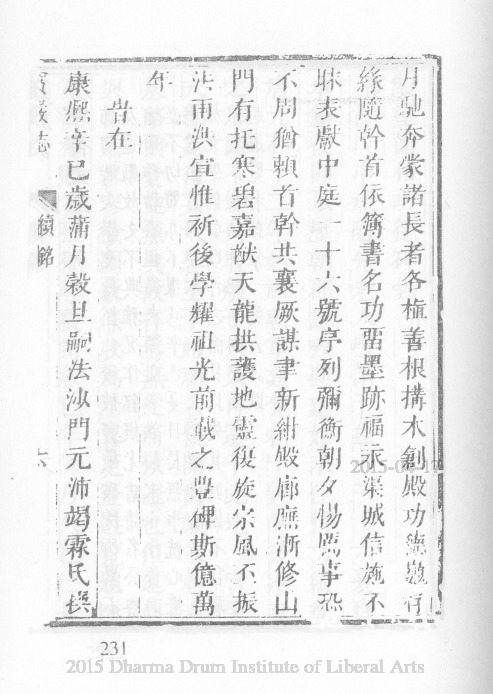 月馳奔蒙諸長者各植善根搆木創殿功總數
緣隨幹首依簿書名功畱墨跡福永渠城信施不
昧表獻中庭一十六號序列彌衡朝夕惕厲事恐
不周猶賴首幹共襄厥謀聿新紺殿廊廡漸修山
門有托寒碧嘉猷天龍拱護地靈復旋宗風不振
法雨洪宣惟祈後學耀祖光前載之豐碑斯億萬
年 昔在
康熙辛巳歲蒲月穀旦嗣法沙門元沛竭霖氏撰
嚴志 續銘 六
2015-04-17
231
2015 Dharma Drum Institute of Liberal Arts